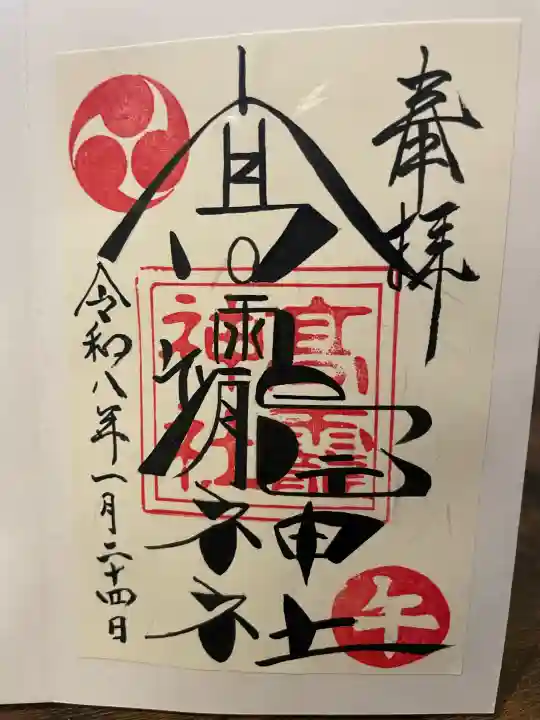 奉拝
髙龗神社
髙龗
神社
午
令和八年一月二十四日